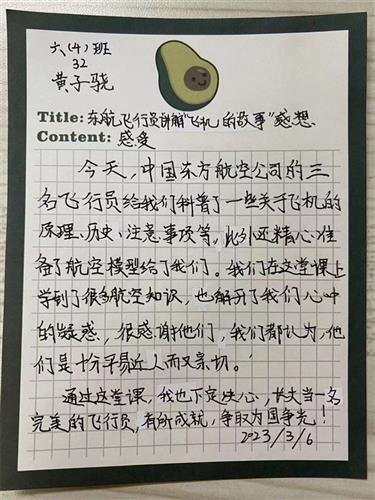 六(4)班
32
黄子骁
Title: 东航飞行员讲解“飞机的故事”感想
Content: 感受
今天,中国东方航空公司的三
名飞行员给我们科普了一些关于飞机的
原理、历史、注意事项等,此外还精心准
备了航空模型给了我们。我们在这堂课上
学到了很多航空知识,也解开了我们心中
的疑惑,很感谢他们,我们都认为,他
们是十分平易近人而又亲切。
通过这堂课,我也下定决心,长大当一名
完美的飞行员,有所成就,争取为国争光!
2023/3/6